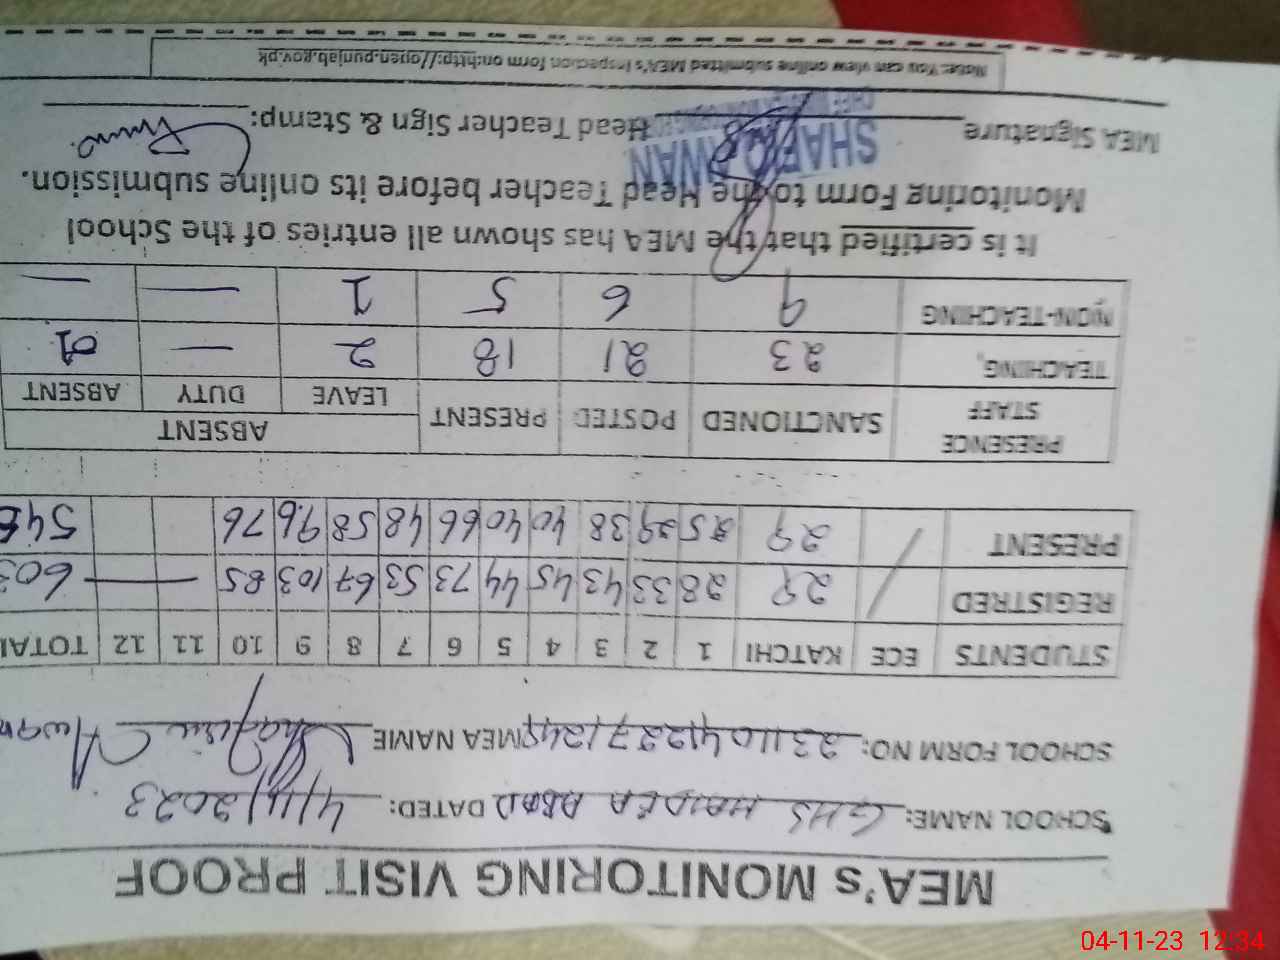 MEA's MONITORING VISIT PROOF
SCHOOL NAME: GHS HAIDER ABAD DATED: 4/11/2023
SCHOOL FORM NO: MEA NAME Shafiq Awan
STUDENTS ECE KATCHI 1 2 3 4 5 6 7 8 9 10 11 12 TOTAL
REGISTRED / 29 28 33 43 45 44 73 53 67 103 85 — — 603
PRESENT / 29 25 29 38 40 40 66 48 58 96 76
PRESENCE STAFF SANCTIONED POSTED PRESENT ABSENT
LEAVE DUTY ABSENT
TEACHING 23 21 18 2 — 01
NON-TEACHING 9 6 5 1 — —
It is certified that the MEA has shown all entries of the School
Monitoring Form to the Head Teacher before its online submission.
MEA Signature Head Teacher Sign & Stamp:
SHAFIQ AWAN
Note: You can view online submitted MEA's Inspection form on:http://open.punjab.gov.pk
04-11-23 12:34